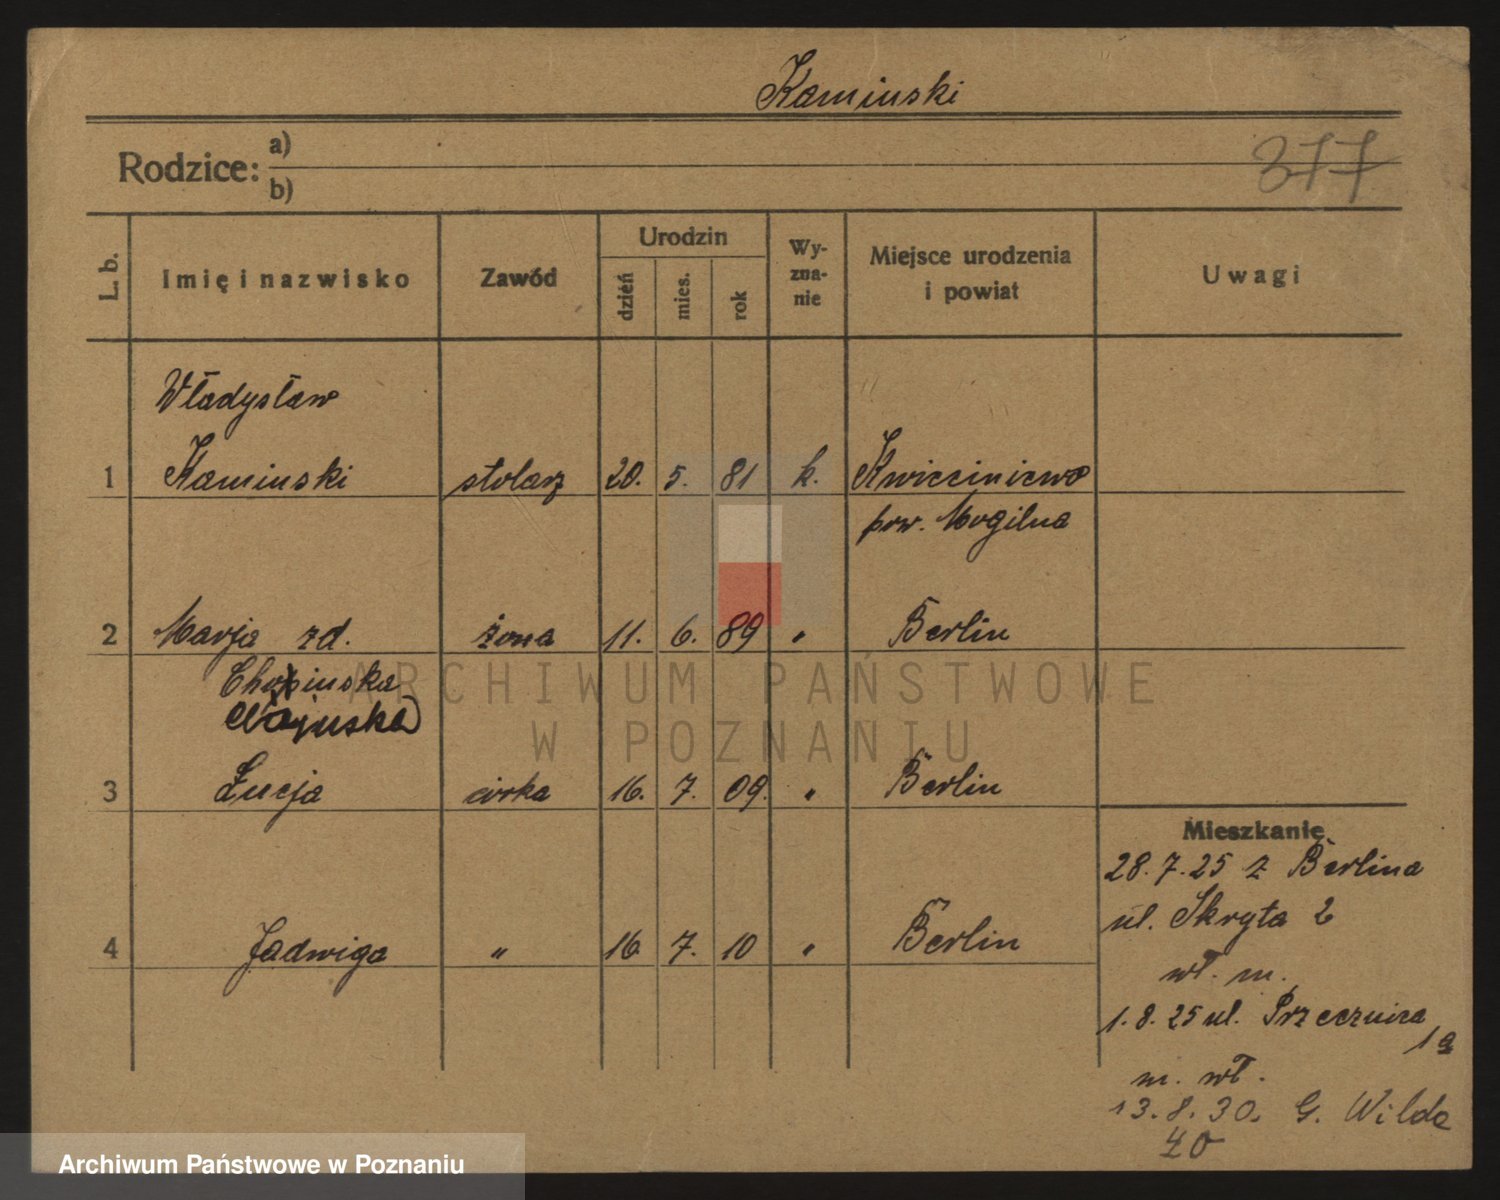 Kaminski
Rodzice: a)
b)
377
L. b.
Imię i nazwisko
Zawód
Urodzin
dzień
mies.
rok
Wy-
zna-
nie
Miejsce urodzenia
i powiat
Uwagi
Władysław
1 Kaminski stolarz 20. 5. 81 k. Kwieciniewo
pow. Mogilna
2 Marja zd. żona 11. 6. 89 " Berlin
3 Łucja córka 16. 7. 09. " Berlin
Mieszkanie
28.7.25 z Berlina
ul. Skryta 2
wł. m.
4 Jadwiga " 16 7. 10 " Berlin
1.8.25 ul. Przecznica
1a
m. wł.
13.8.30. G. Wilda
40
ARCHIWUM PAŃSTWOWE
W POZNANIU
Archiwum Państwowe w Poznaniu